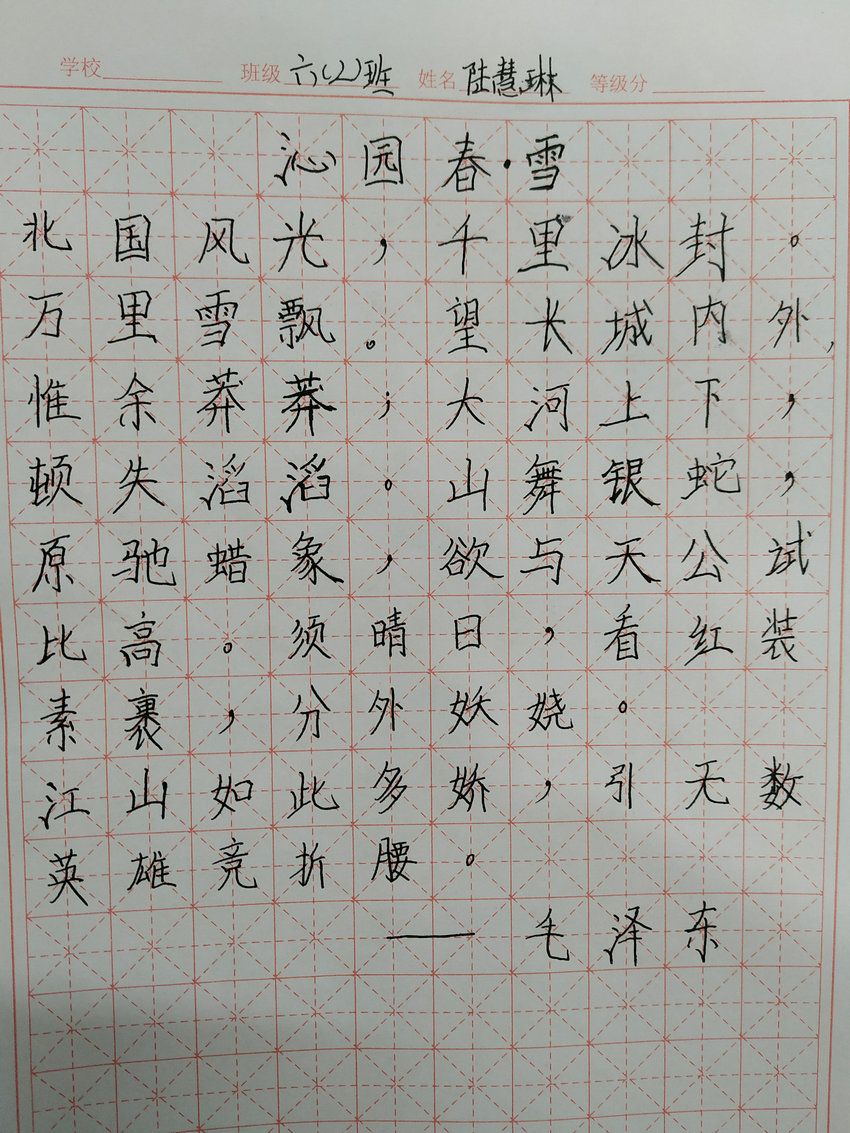 学校 班级 六(2)班 姓名 陆慧琳 等级分
沁园春·雪
北国风光，千里冰封。
万里雪飘。望长城内外，
惟余莽莽；大河上下，
顿失滔滔。山舞银蛇，
原驰蜡象，欲与天公试
比高。须晴日，看红装
素裹，分外妖娆。
江山如此多娇，引无数
英雄竞折腰。
——毛泽东